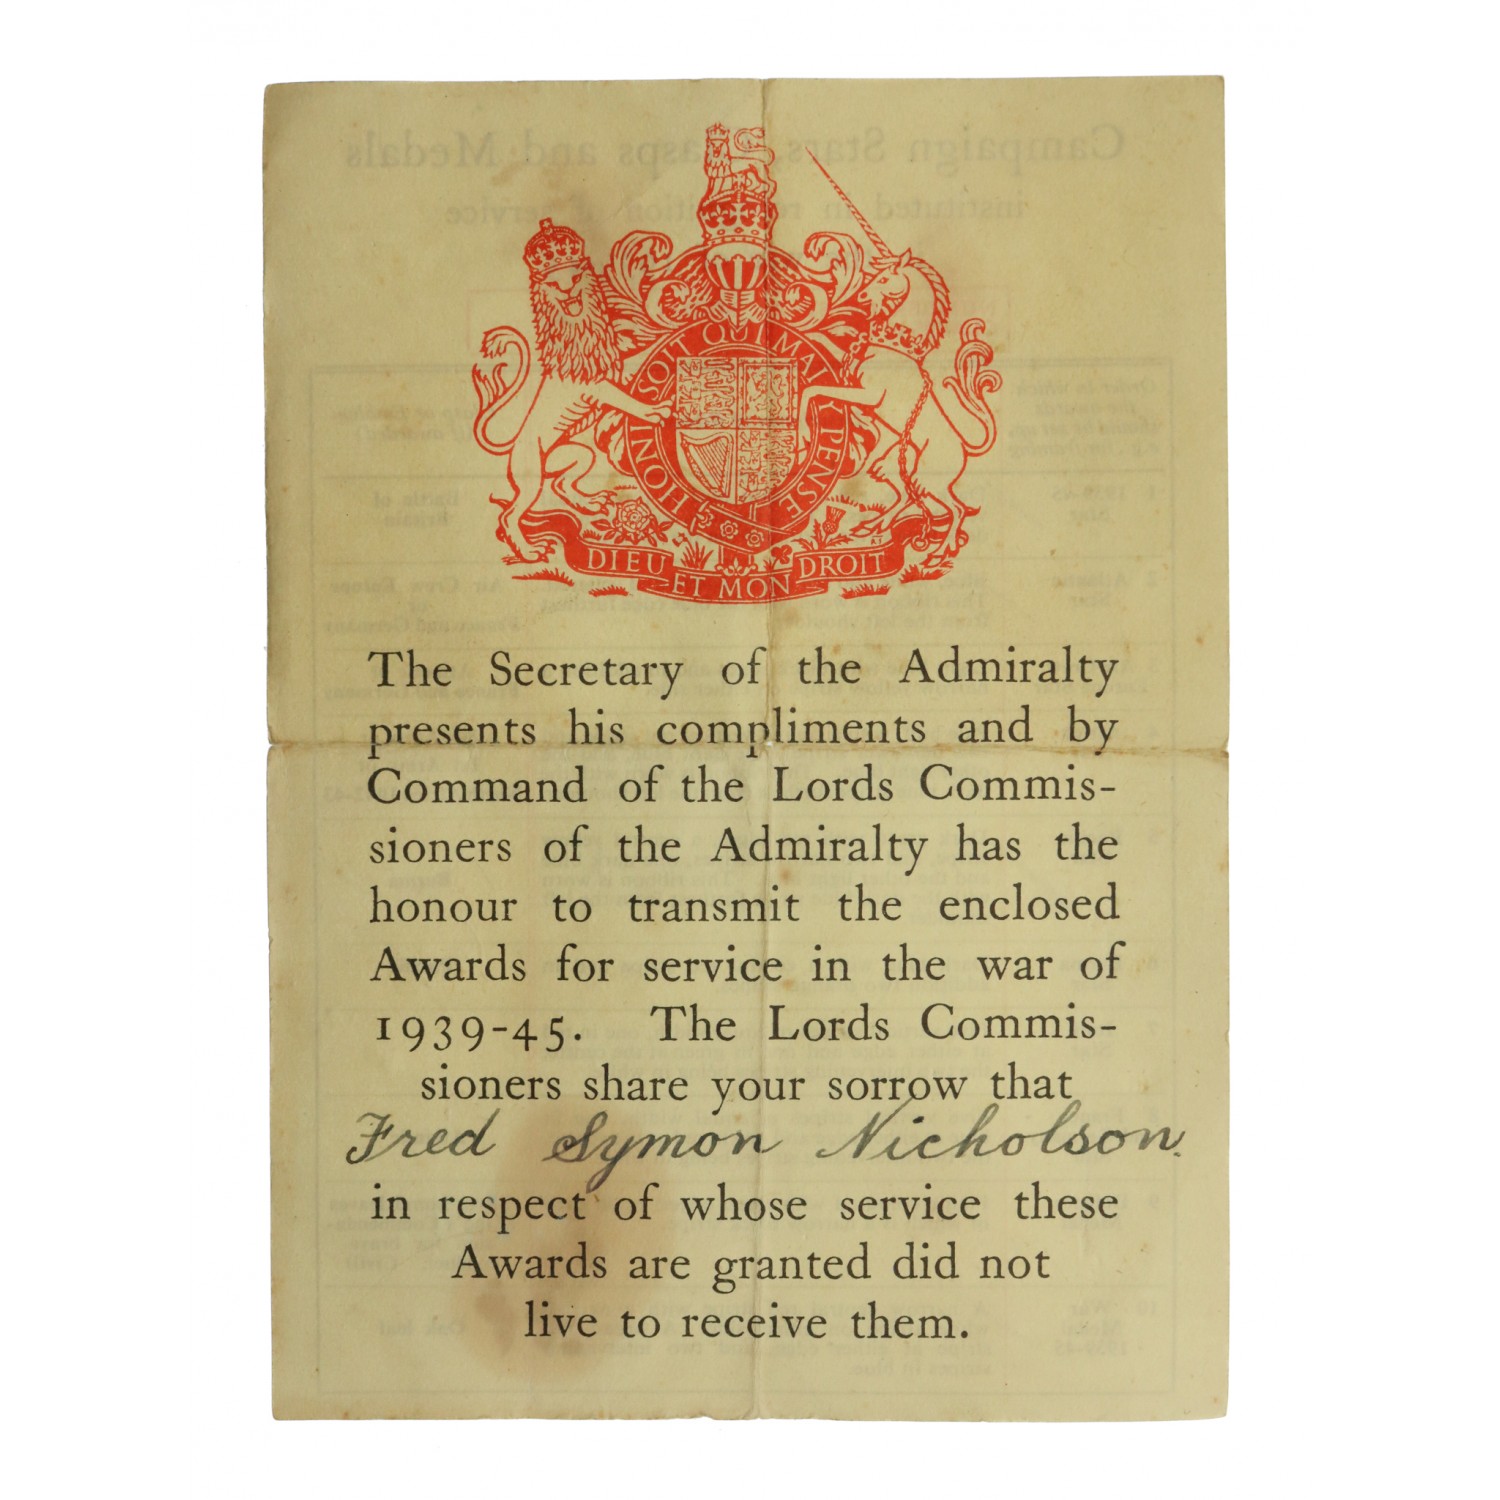 HONI SOIT QUI MAL Y PENSE
DIEU ET MON DROIT
The Secretary of the Admiralty
presents his compliments and by
Command of the Lords Commis-
sioners of the Admiralty has the
honour to transmit the enclosed
Awards for service in the war of
1939-45. The Lords Commis-
sioners share your sorrow that
Fred Symon Nicholson.
in respect of whose service these
Awards are granted did not
live to receive them.